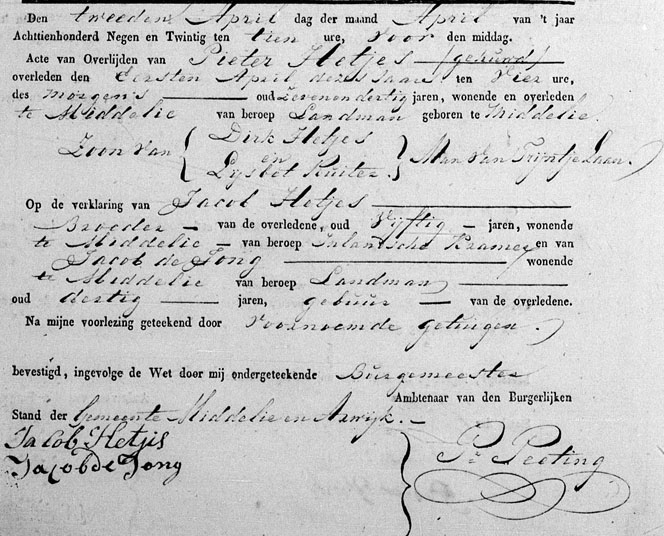 Den tweeden April dag der maand April van 't jaar
Achttienhonderd Negen en Twintig ten tien ure, voor den middag.
Acte van Overlijden van Pieter Hetjes (gehuwd)
overleden den Eersten April dezes Jaars ten Vier ure,
des morgens oud Zevenendertig jaren, wonende en overleden
te Middelie van beroep Landman geboren te Middelie.
Zoon van { Dirk Hetjes
en
Lysbet Ruiter. } Man van Trijntje Laan.
Op de verklaring van Jacob Hetjes
Broeder van de overledene, oud Vijftig jaren, wonende
te Middelie van beroep Inlandsche Kramer en van
Jacob de Jong wonende
te Middelie van beroep Landman
oud dertig jaren, gebuur van de overledene.
Na mijne voorlezing geteekend door voornoemde getuigen.
bevestigd, ingevolge de Wet door mij ondergeteekende Burgemeester
Ambtenaar van den Burgerlijken
Stand der Gemeente Middelie en Axwijk.
Jacob Hetjis
Jacob de Jong
Peeting